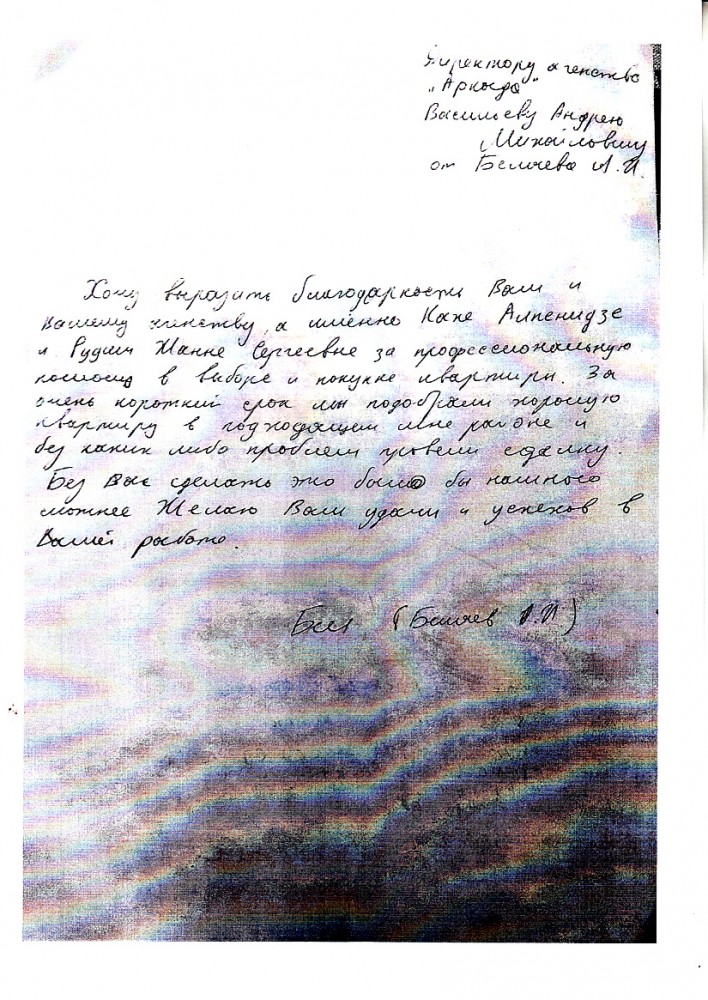 Директору агенства
"Аркада"
Васильеву Андрею
Михайловичу
от Беляева А.И.
Хочу выразить благодарность Вам и
Вашему агенству, а именно Кахе Алпенидзе
и Рудич Жанне Сергеевне за профессиональную
помощь в выборе и покупке квартиры. За
очень короткий срок мы подобрали хорошую
квартиру в подходящем мне районе и
без каких либо проблем провели сделку.
Без Вас сделать это было бы намного
сложнее Желаю Вам удачи и успехов в
Вашей работе.
(Беляев А.И)